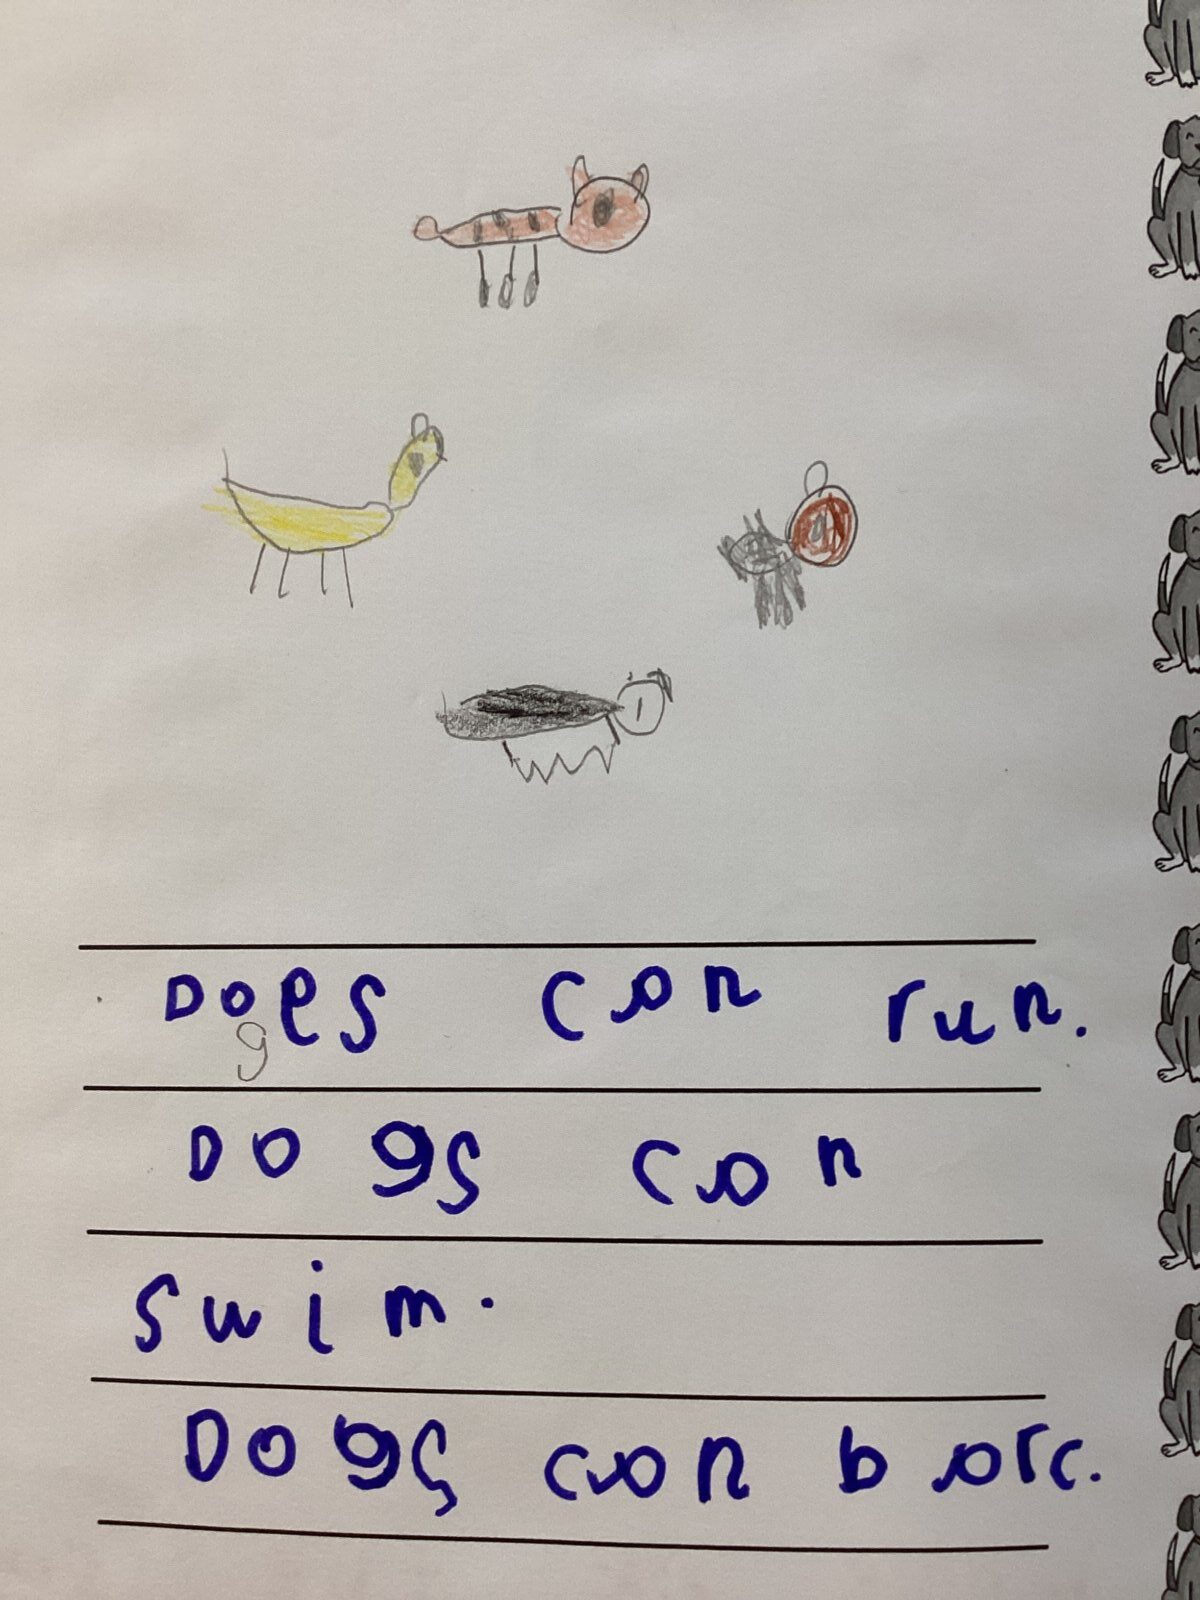 Does can run.
g
Dogs can
swim.
Dogs can barc.